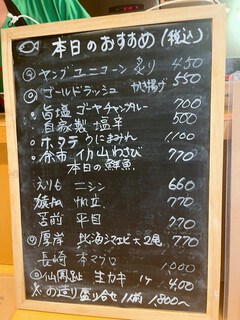 本日のおすすめ (税込)
◎ ヤングコーン 炙り 450
◎ ゴールドラッシュ かき揚げ 550
・旨塩ゴーヤチャンプルー 700
・自家製 塩辛 500
・ホタテ うにまみれ 1,100
・余市 わさび 770
本日の鮮魚
えりも ニシン 660
帆立 770
苫前 平目 770
◎ 厚岸 大2尾 770
長崎 本マグロ 1,000
◎ 仙鳳趾 生カキ 1ケ 400
お造り盛り合せ 1人前 1,800~